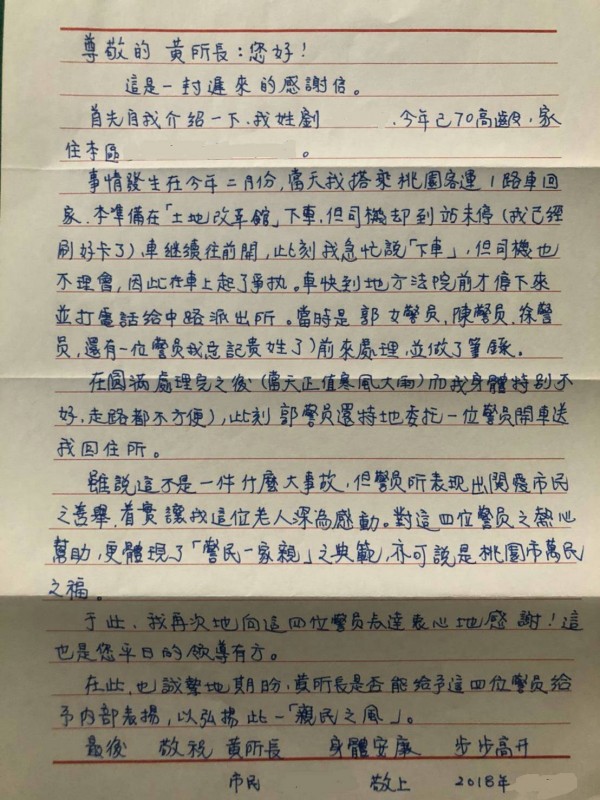 尊敬的 黃所長:您好!
這是一封遲來的感謝信。
首先自我介紹一下,我姓劉 ,今年已70高齡,家
住本區 。
事情發生在今年二月份,當天我搭乘桃園客運1路車回
家,本準備在「土地改革館」下車,但司機却到站未停(我已經
刷好卡了),車繼續往前開,此刻我急忙說「下車」,但司機也
不理會,因此在車上起了爭执。車快到地方法院前才停下來
並打電話給中路派出所。當時是郭女警員,陳警員,徐警
員,還有一位警員我忘記貴姓了)前來處理,並做了筆錄。
在圓滿處理完之後(當天正值寒風大雨)而我身體特别不
好,走路都不方便),此刻郭警員還特地委托一位警員開車送
我回住所。
雖說這不是一件什麼大事故,但警員所表現出関愛市民
之善舉,着實讓我這位老人深為感動。對這四位警員之熱心
幫助,更體現了「警民一家親」之典範,亦可說是桃園市萬民
之福。
于此,我再次地向這四位警員表達衷心地感謝!這
也是您平日的領導有方。
在此,也誠摯地期盼,黃所長是否能給予這四位警員給
予内部表揚,以弘揚此一「親民之風」。
最後 敬祝 黃所長 身體安康 步步高升
市民 敬上 2018年